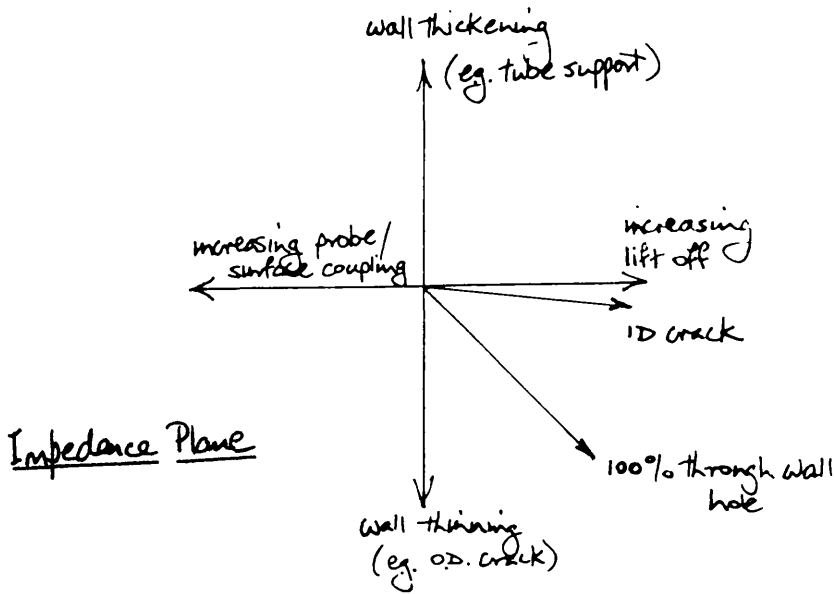 wall thickening
(eg. tube support)
increasing probe/
surface coupling
increasing
lift off
ID crack
Impedance Plane
100% through wall
hole
wall thinning
(eg. O.D. crack)